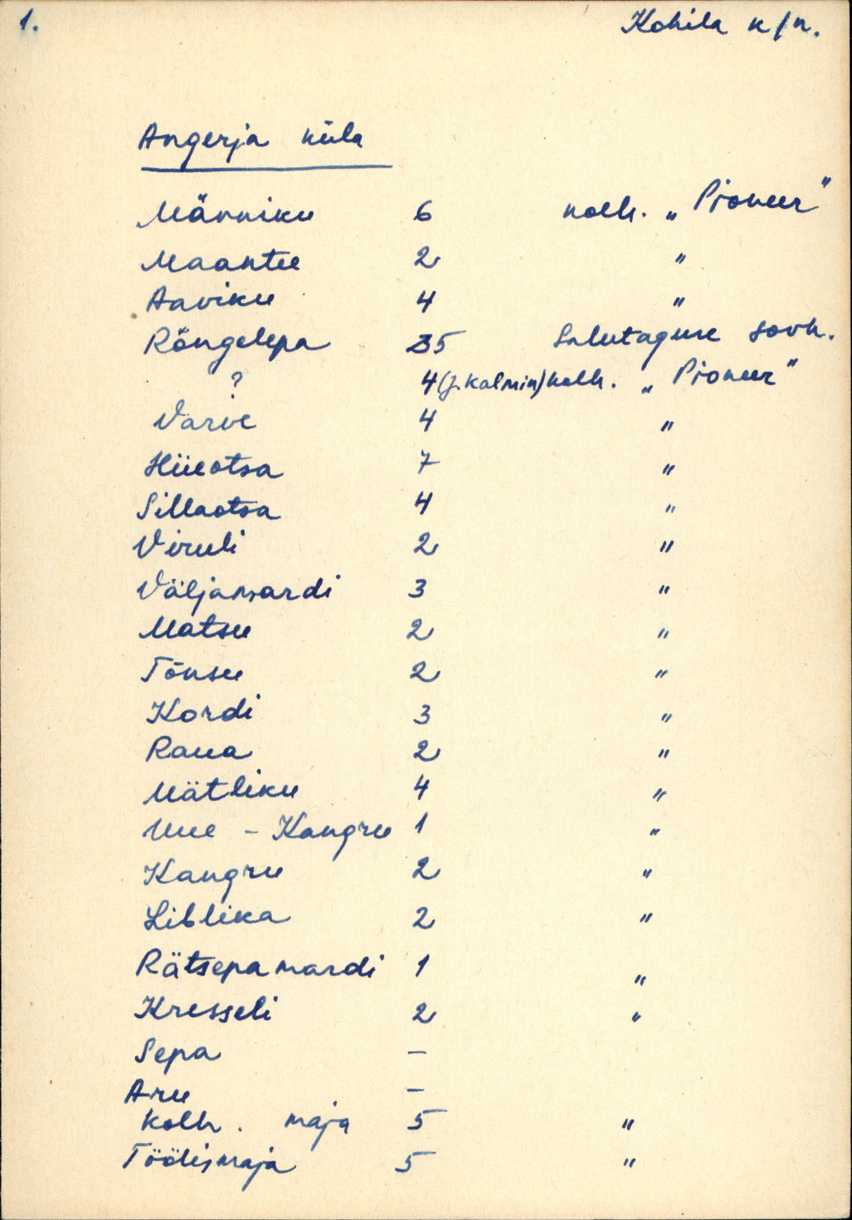 1. Kohila k/n.
Angerja küla
Männiku 6 kolh. „Pioneer"
Maantee 2 "
Aaviku 4 "
Rõngelepa 35 Salutaguse sovh.
? 4 (J. Kalmin) kolh. „Pioneer"
Varve 4 "
Hiieotsa 7 "
Sillaotsa 4 "
Viruli 2 "
Väljamardi 3 "
Matsu 2 "
Tõnsu 2 "
Kordi 3 "
Raua 2 "
Mätliku 4 "
Uue - Kangru 1 "
Kangru 2 "
Liblika 2 "
Rätsepamardi 1 "
Kresseli 2 "
Sepa –
Aru –
Kolh. maja 5 "
Töölismaja 5 "